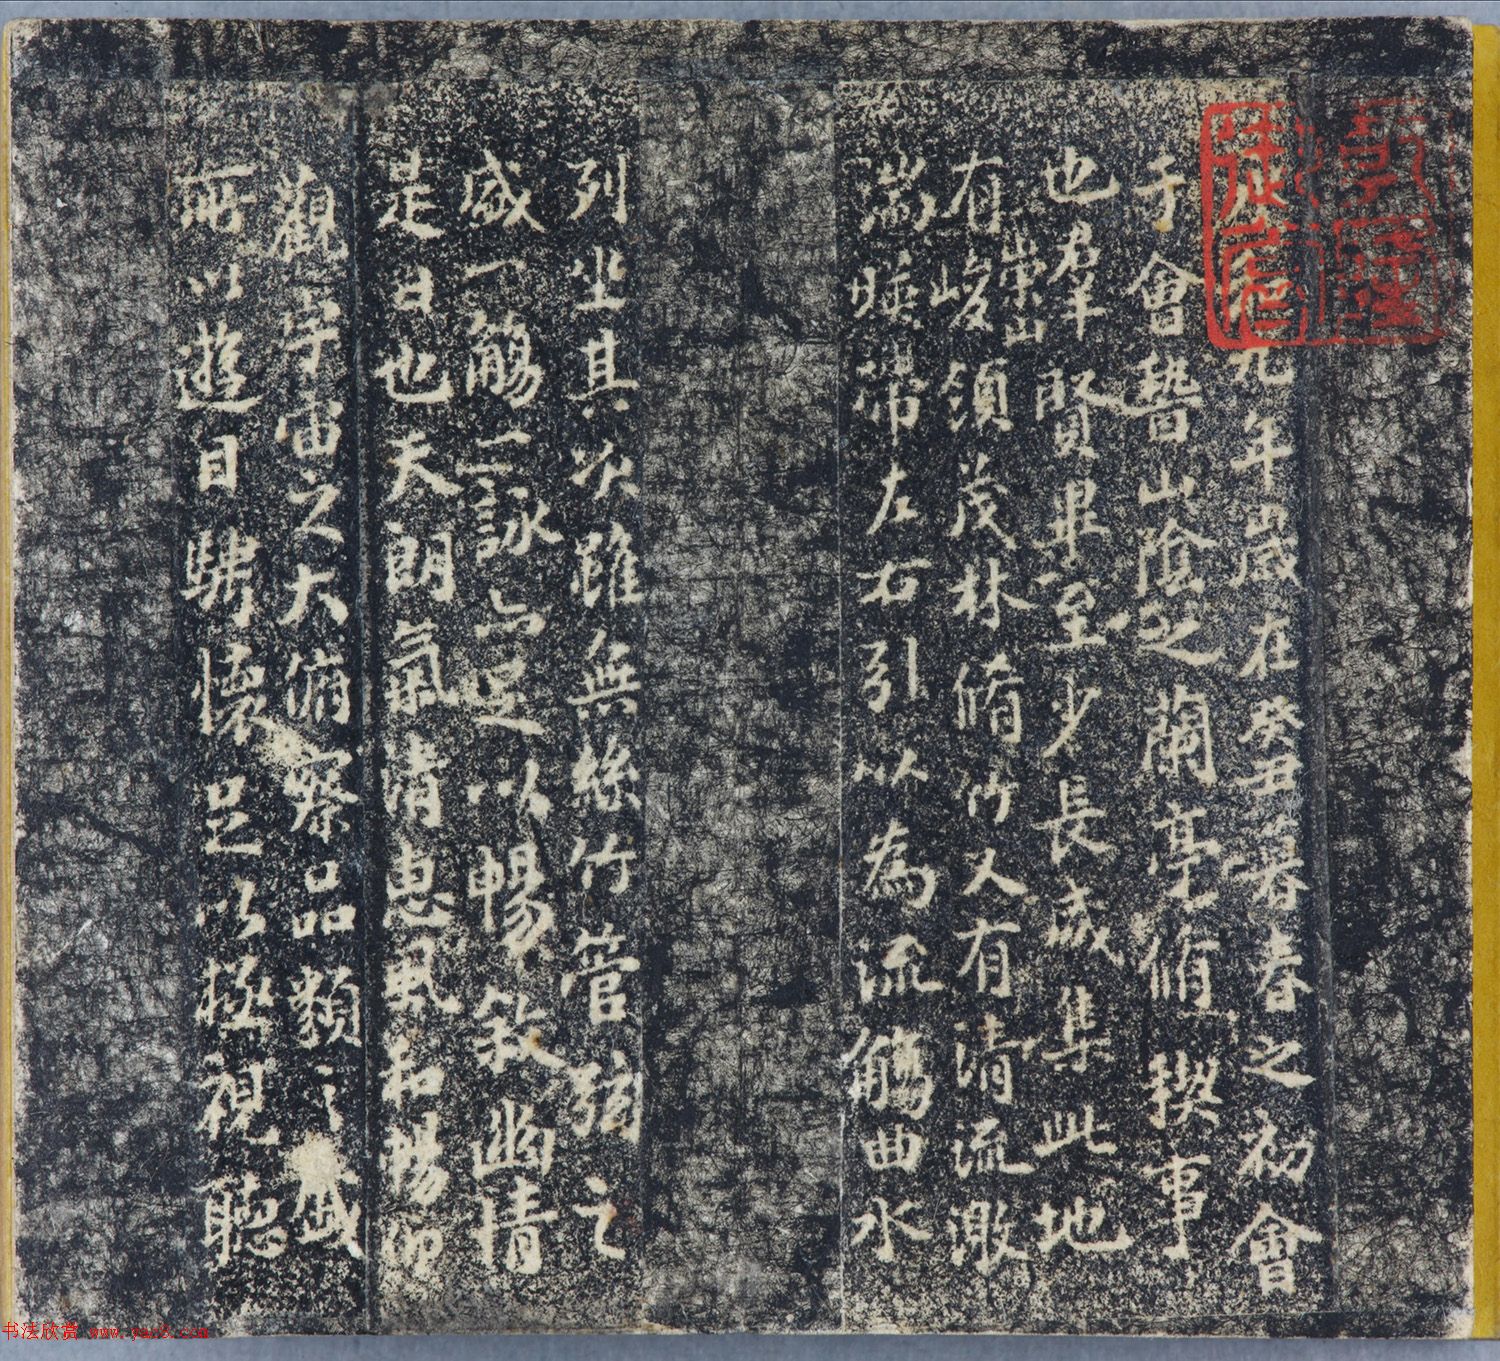 九年歲在癸丑暮春之初會
于會稽山陰之蘭亭脩禊事
也羣賢畢至少長咸集此地
有崇山峻領茂林脩竹又有清流激
湍暎帶左右引以為流觴曲水
列坐其次雖無絲竹管弦之
盛一觴一詠亦足以暢敘幽情
是日也天朗氣清惠風和暢仰
觀宇宙之大俯察品類之盛
所以遊目騁懷足以極視聽
书法欣赏 www.yac8.com